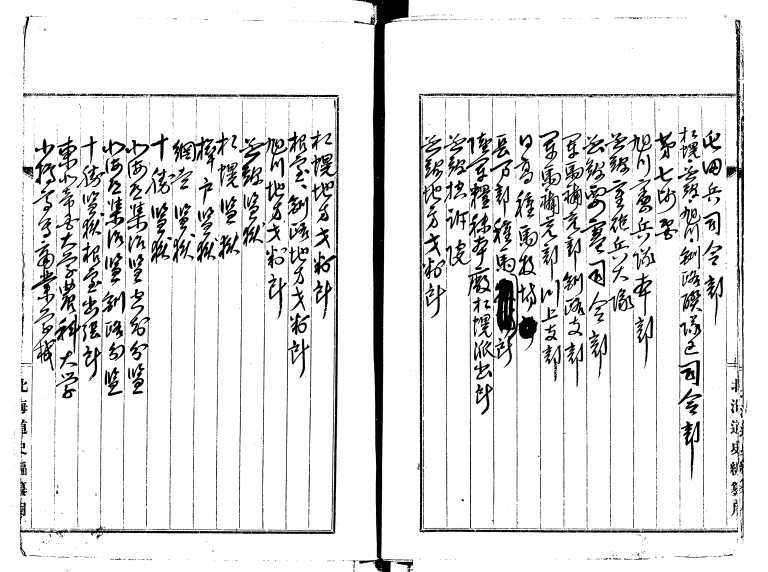 屯田兵司令部
札幌、函館、旭川、釧路聯隊区司令部
第七師団
旭川憲兵隊本部
函館重砲兵大隊
函館要塞司令部
軍馬補充部釧路支部
軍馬補充部川上支部
日高種馬牧場
長万部種馬所
陸軍糧秣本廠札幌派出所
函館控訴院
函館地方裁判所
札幌地方裁判所
根室、釧路地方裁判所
旭川地方裁判所
函館監獄
札幌監獄
樺戸監獄
網走監獄
十勝監獄
北海道集治監空知分監
北海道集治監釧路分監
十勝監獄根室出張所
東北帝国大学農科大学
小樽高等商業学校
北海道史編纂用
北海道史編纂用